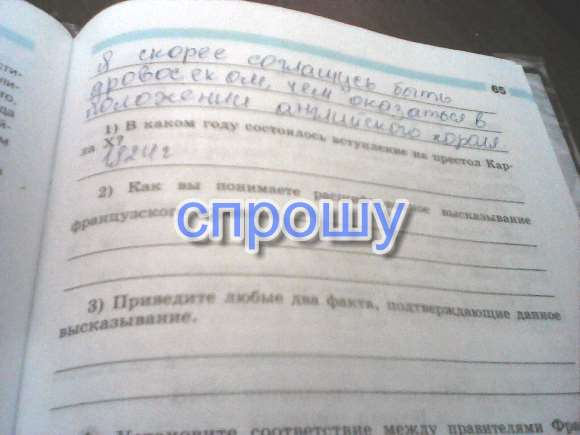 65
Я скорее соглашусь быть
дровосеком, чем оказаться в
положении английского короля
1) В каком году состоялось вступление на престол Кар-
ла X?
1824 г
2) Как вы понимаете высказывание
французского
спрошу
3) Приведите любые два факта, подтверждающие данное
высказывание.
Установите соответствие между правителями Фра